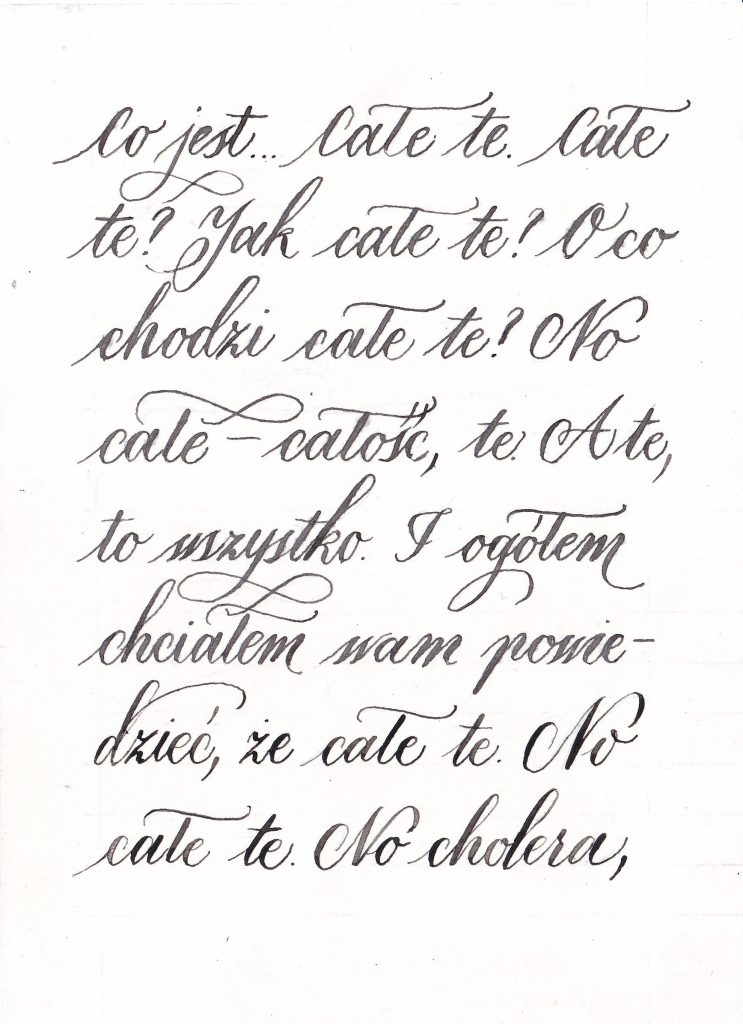 Co jest... Całe te. Całe
te? Jak całe te? O co
chodzi całe te? No
całe – całość, te. A te,
to wszystko. I ogółem
chciałem wam powie–
dzieć, że całe te. No
całe te. No cholera,